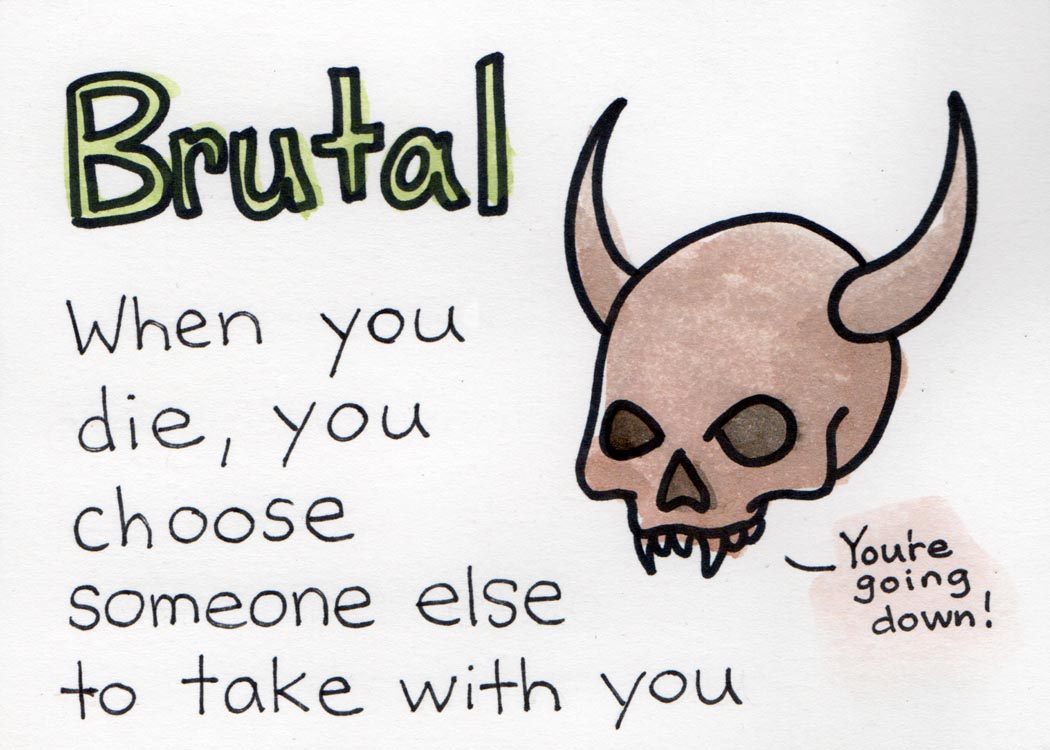 Brutal
When you
die, you
choose
someone else
to take with you
You're
going
down!